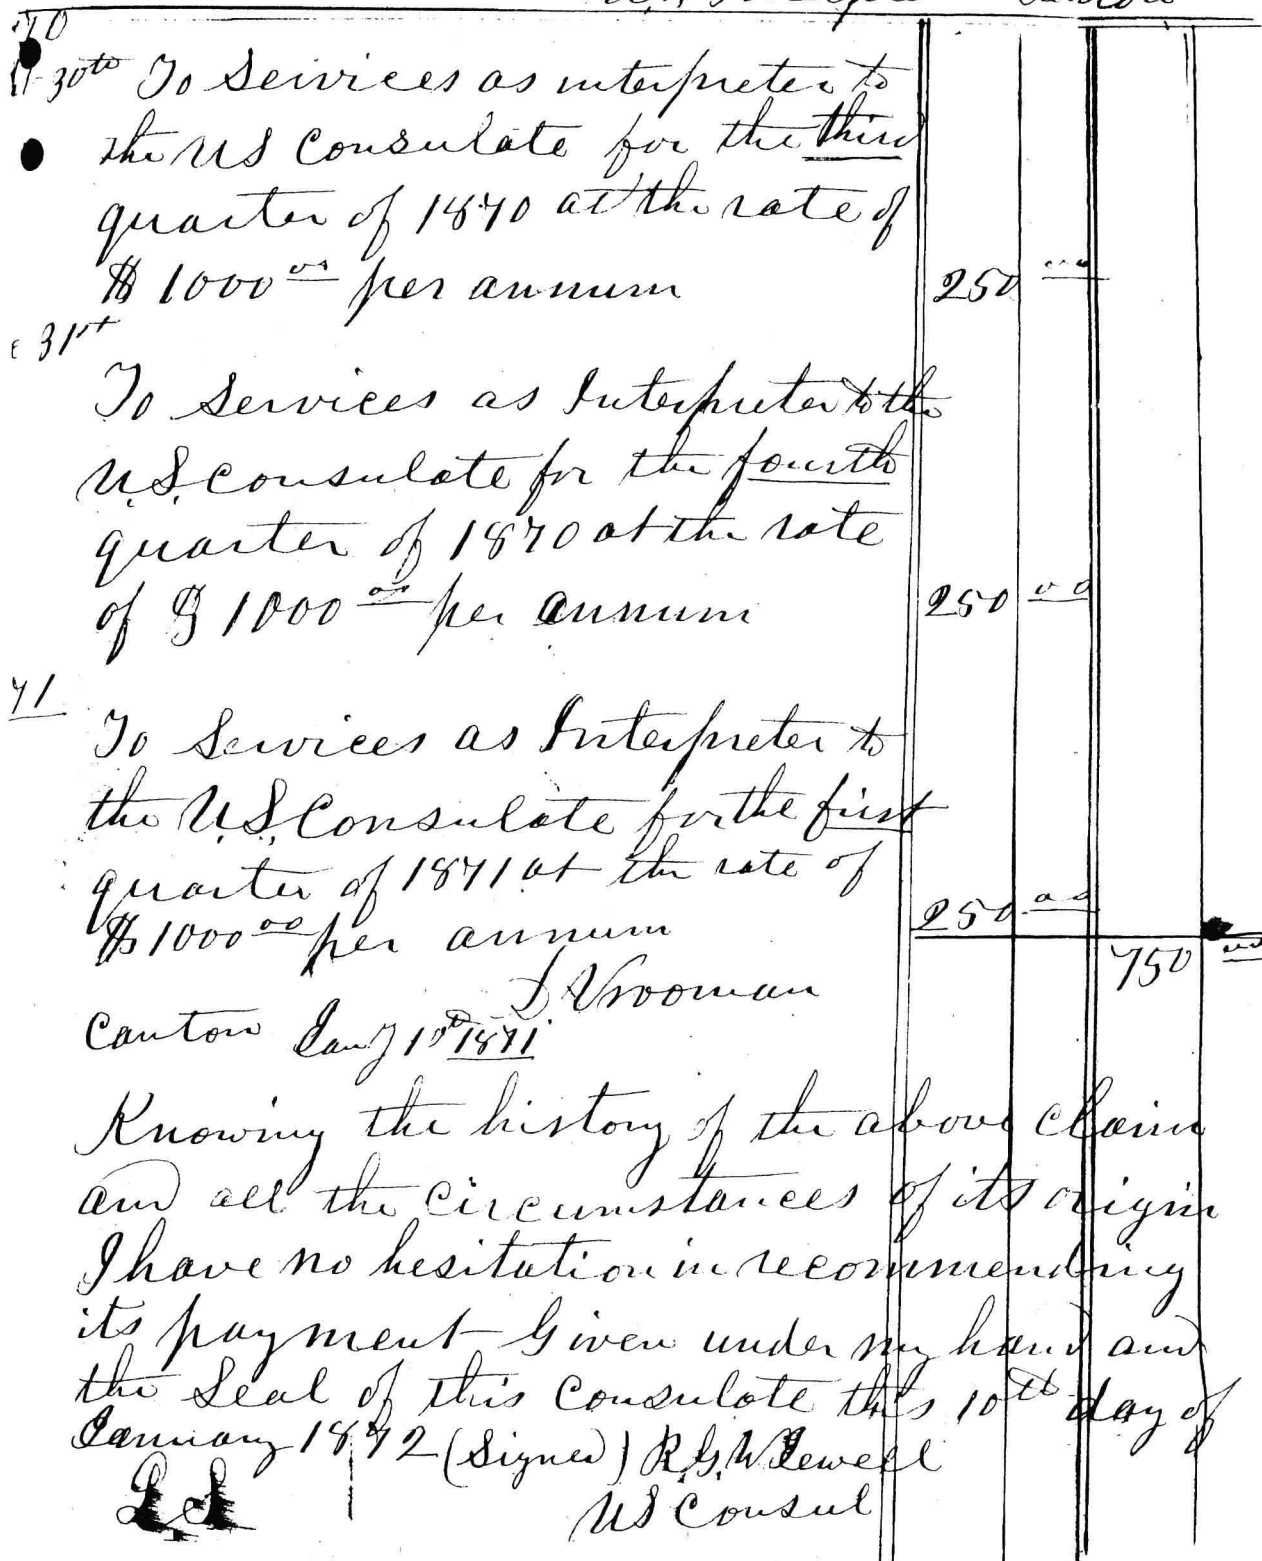 70
30th To Services as interpreter to
the US Consulate for the third
quarter of 1870 at the rate of
$1000 00 per annum 250 00
31st
To Services as Interpreter to the
U.S. Consulate for the fourth
quarter of 1870 at the rate
of $1000 00 per annum 250 00
71
To Services as Interpreter to
the U.S. Consulate for the first
quarter of 1871 at the rate of
$1000 00 per annum 250 00
750 00
D Vrooman
Canton Jany 10th 1871
Knowing the history of the above claim
and all the circumstances of its origin
I have no hesitation in recommending
its payment Given under my hand and
the Seal of this Consulate this 10th day of
January 1872 (Signed) R.G.W. Jewell
LS US Consul